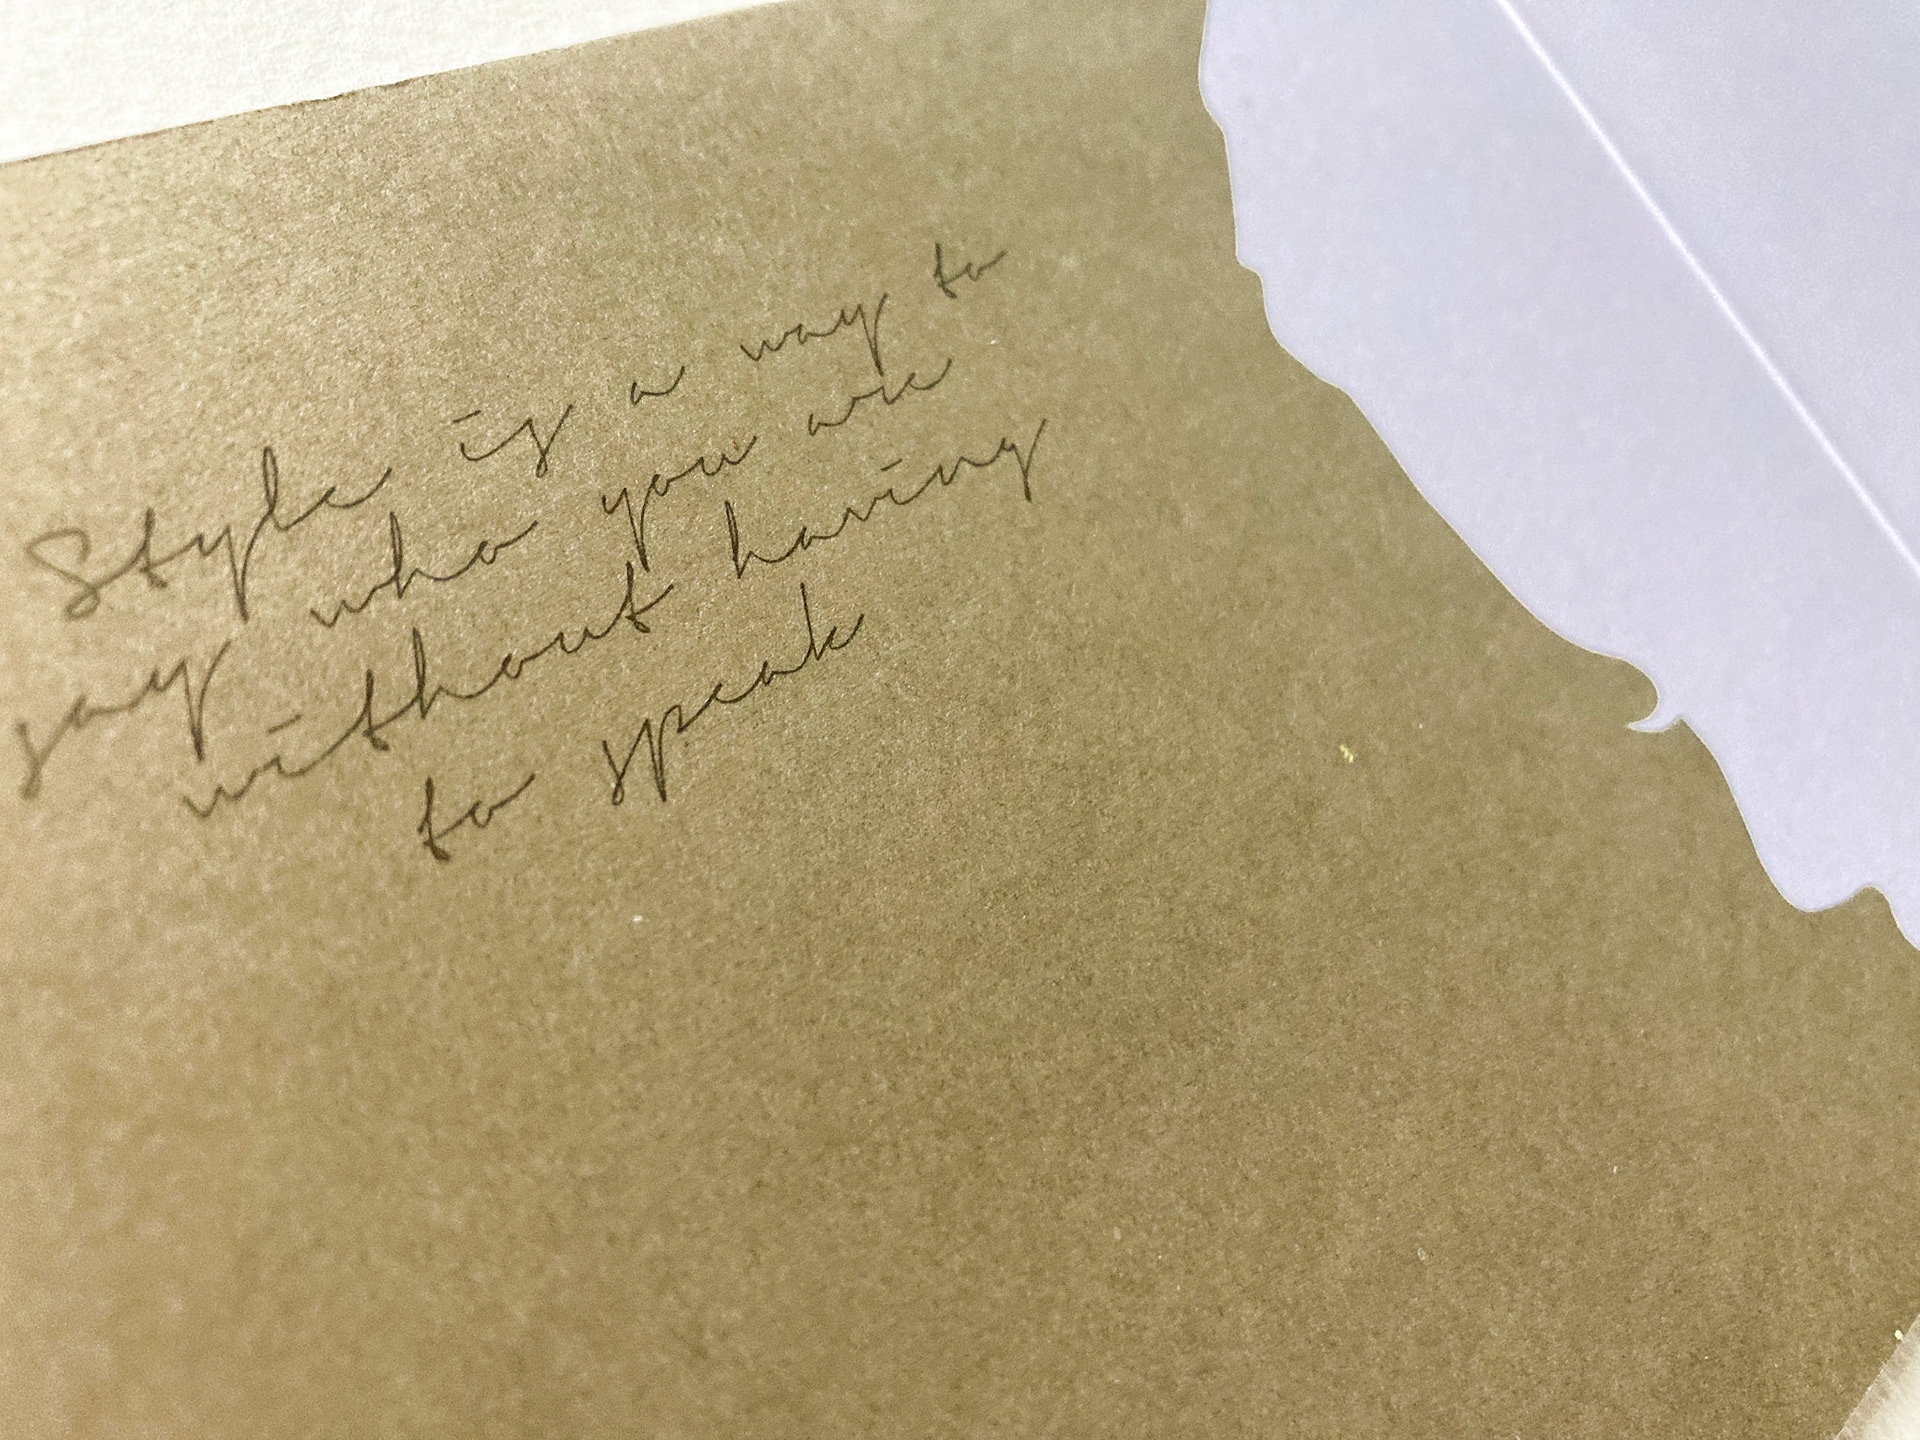 Style is a way to
say who you are
without having
to speak